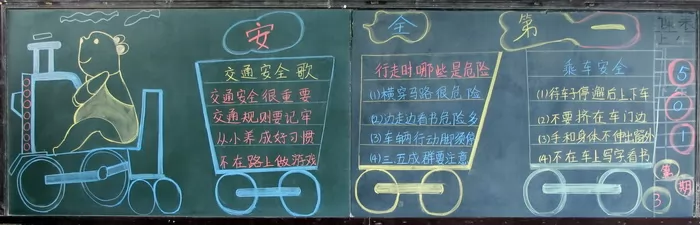 安
全
第
一
交通安全歌
交通安全很重要
交通规则要记牢
从小养成好习惯
不在路上做游戏
行走时哪些是危险
(1)横穿马路很危险
(2)边走边看书危险多
(3)车辆行动脚须停
(4)三五成群要注意
乘车安全
(1)待车子停遛后上下车
(2)不要挤在车门边
(3)手和身体不伸出窗外
(4)不在车上写字看书
5
0
1
第
3
期